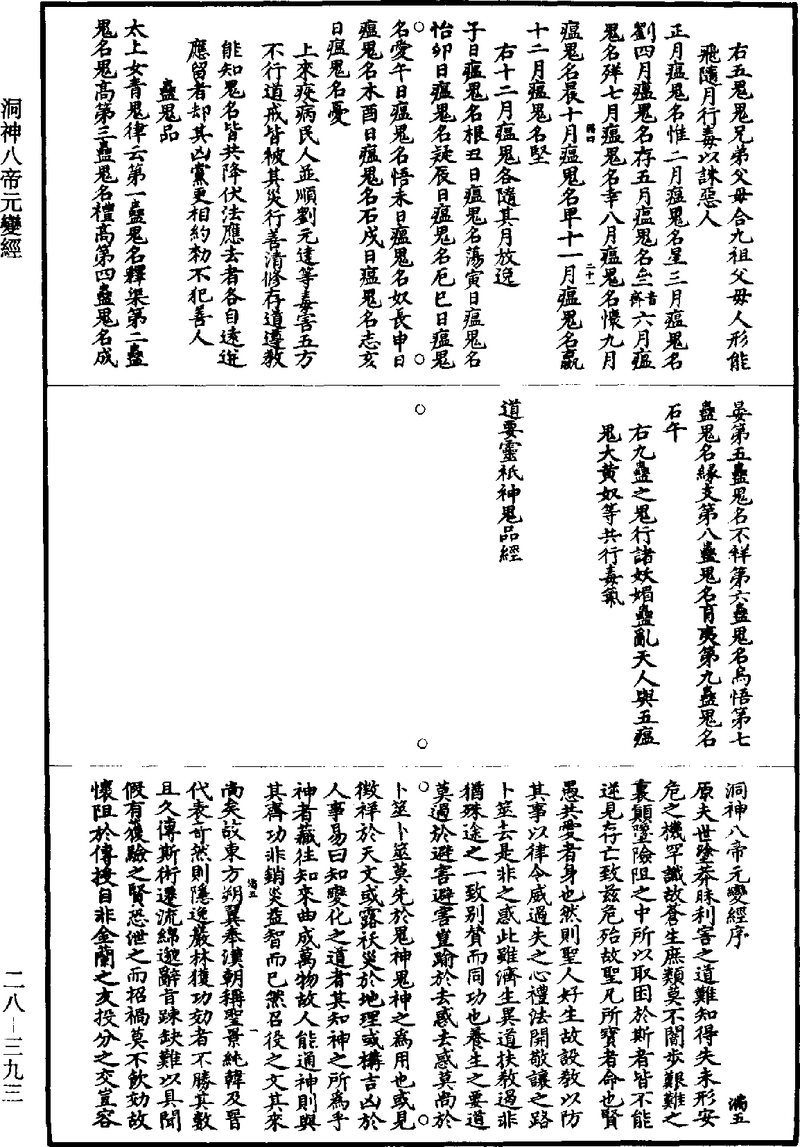 右五鬼鬼兄弟父母合九祖父母人形能
飛隨月行毒以誅惡人
正月瘟鬼名惟二月瘟鬼名星三月瘟鬼名
劉四月瘟鬼名存五月瘟鬼名亝音齊六月瘟
鬼名殚七月瘟鬼名幸八月瘟鬼名懷九月
滿四
二十一
瘟鬼名晨十月瘟鬼名甲十一月瘟鬼名羸
十二月瘟鬼名堅
右十二月瘟鬼各隨其月放逸
子日瘟鬼名根丑日瘟鬼名蕩寅日瘟鬼名
怡卯日瘟鬼名疑辰日瘟鬼名厄巳日瘟鬼
名愛午日瘟鬼名悟未日瘟鬼名奴長申日
瘟鬼名木酉日瘟鬼名石戌日瘟鬼名志亥
日瘟鬼名憂
上來疫病民人並順劉元達等毒害五方
不行道戒皆被其災行善清修存道遵教
能知鬼名皆共降伏法應去者各自遠逝
應留者却其凶黨更相約勑不犯善人
蠱鬼品
太上女青鬼律云第一蠱鬼名釋梁第二蠱
鬼名鬼高第三蠱鬼名禮高第四蠱鬼名成
晏第五蠱鬼名不祥第六蠱鬼名烏悟第七
蠱鬼名緣支第八蠱鬼名肓夷第九蠱鬼名
石午
右九蠱之鬼行諸妖媚蠱亂天人與五瘟
鬼大黃奴等共行毒氣
道要靈祇神鬼品經
洞神八帝元變經序
滿五
原夫世墜莽昧利害之道難知得失未形安
危之機罕識故蒼生庶類莫不闇步艱難之
裏顛墜險阻之中所以取困於斯者皆不能
逆見存亡致兹危殆故聖凡所寶者命也賢
愚共愛者身也然則聖人好生故設教以防
其事以律令威過失之心禮法開敬讓之路
卜筮去是非之惑此雖濟生異道扶教過非
猶殊途之一致别贊而同功也養生之要道
莫過於避害避害豈踰於去惑去惑莫尚於
卜筮卜筮莫先於鬼神鬼神之為用也或見
徵祥於天文或露袄災於地理或構吉凶於
人事易曰知變化之道者其知神之所為乎
神者藏往知來曲成萬物故人能通神則與
其齊功非銷災益智而已然召役之文其來
滿五
一
尚矣故東方朔翼奉漢朝稱聖景純韓友晉
代表奇然則隱逸嚴林獲功効者不勝其數
且久傳斯術遷流綿邈辭旨踈缺難以具聞
假有獲驗之賢恐泄之而招禍莫不飲効故
懷阻於傳授自非金蘭之友投分之交豈容
洞神八帝元變經
二八-三九三